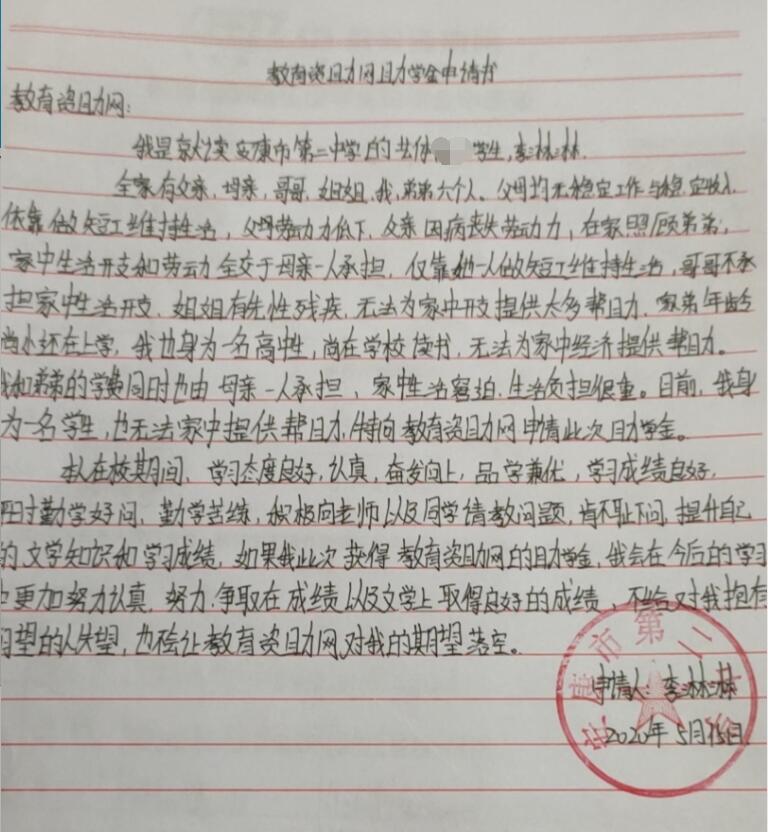 教育资助网助学金申请书
教育资助网:
我是安康市第二中学的 学生,李林林.
全家有父亲,母亲,哥哥,姐姐,我,弟弟六个人。父母均无稳定工作与稳定收入
依靠做短工维持生活,父母劳动力低下,父亲因病丧失劳动力,在家照顾弟弟,
家中生活开支和劳动全交于母亲一人承担,仅靠她一人做短工维持生活,哥哥不承
担家中生活开支,姐姐有先性残疾,无法为家中开支提供太多帮助.家弟年龄
尚小还在上学,我也身为一名高中性,尚在学校读书,无法为家中经济提供帮助。
我和弟弟的学费同时也由母亲一人承担、家中生活窘迫,生活负担很重。目前,我身
为一名学生,也无法家中提供帮助,特向教育资助网申请此次助学金。
本人在校期间、学习态度良好,认真,奋发向上,品学兼优,学习成绩良好,
平时勤学好问、勤学苦练,积极向老师以及同学请教问题,肯不耻下问,提升自己
的文学知识和学习成绩,如果我此次获得教育资助网的助学金,我会在今后的学习
中更加努力认真.努力.争取在成绩以及文学上取得良好的成绩,不会对我抱有
期望的人失望,也不会让教育资助网对我的期望落空。
申请人:李林林
2020年5月15日
安康市第二中